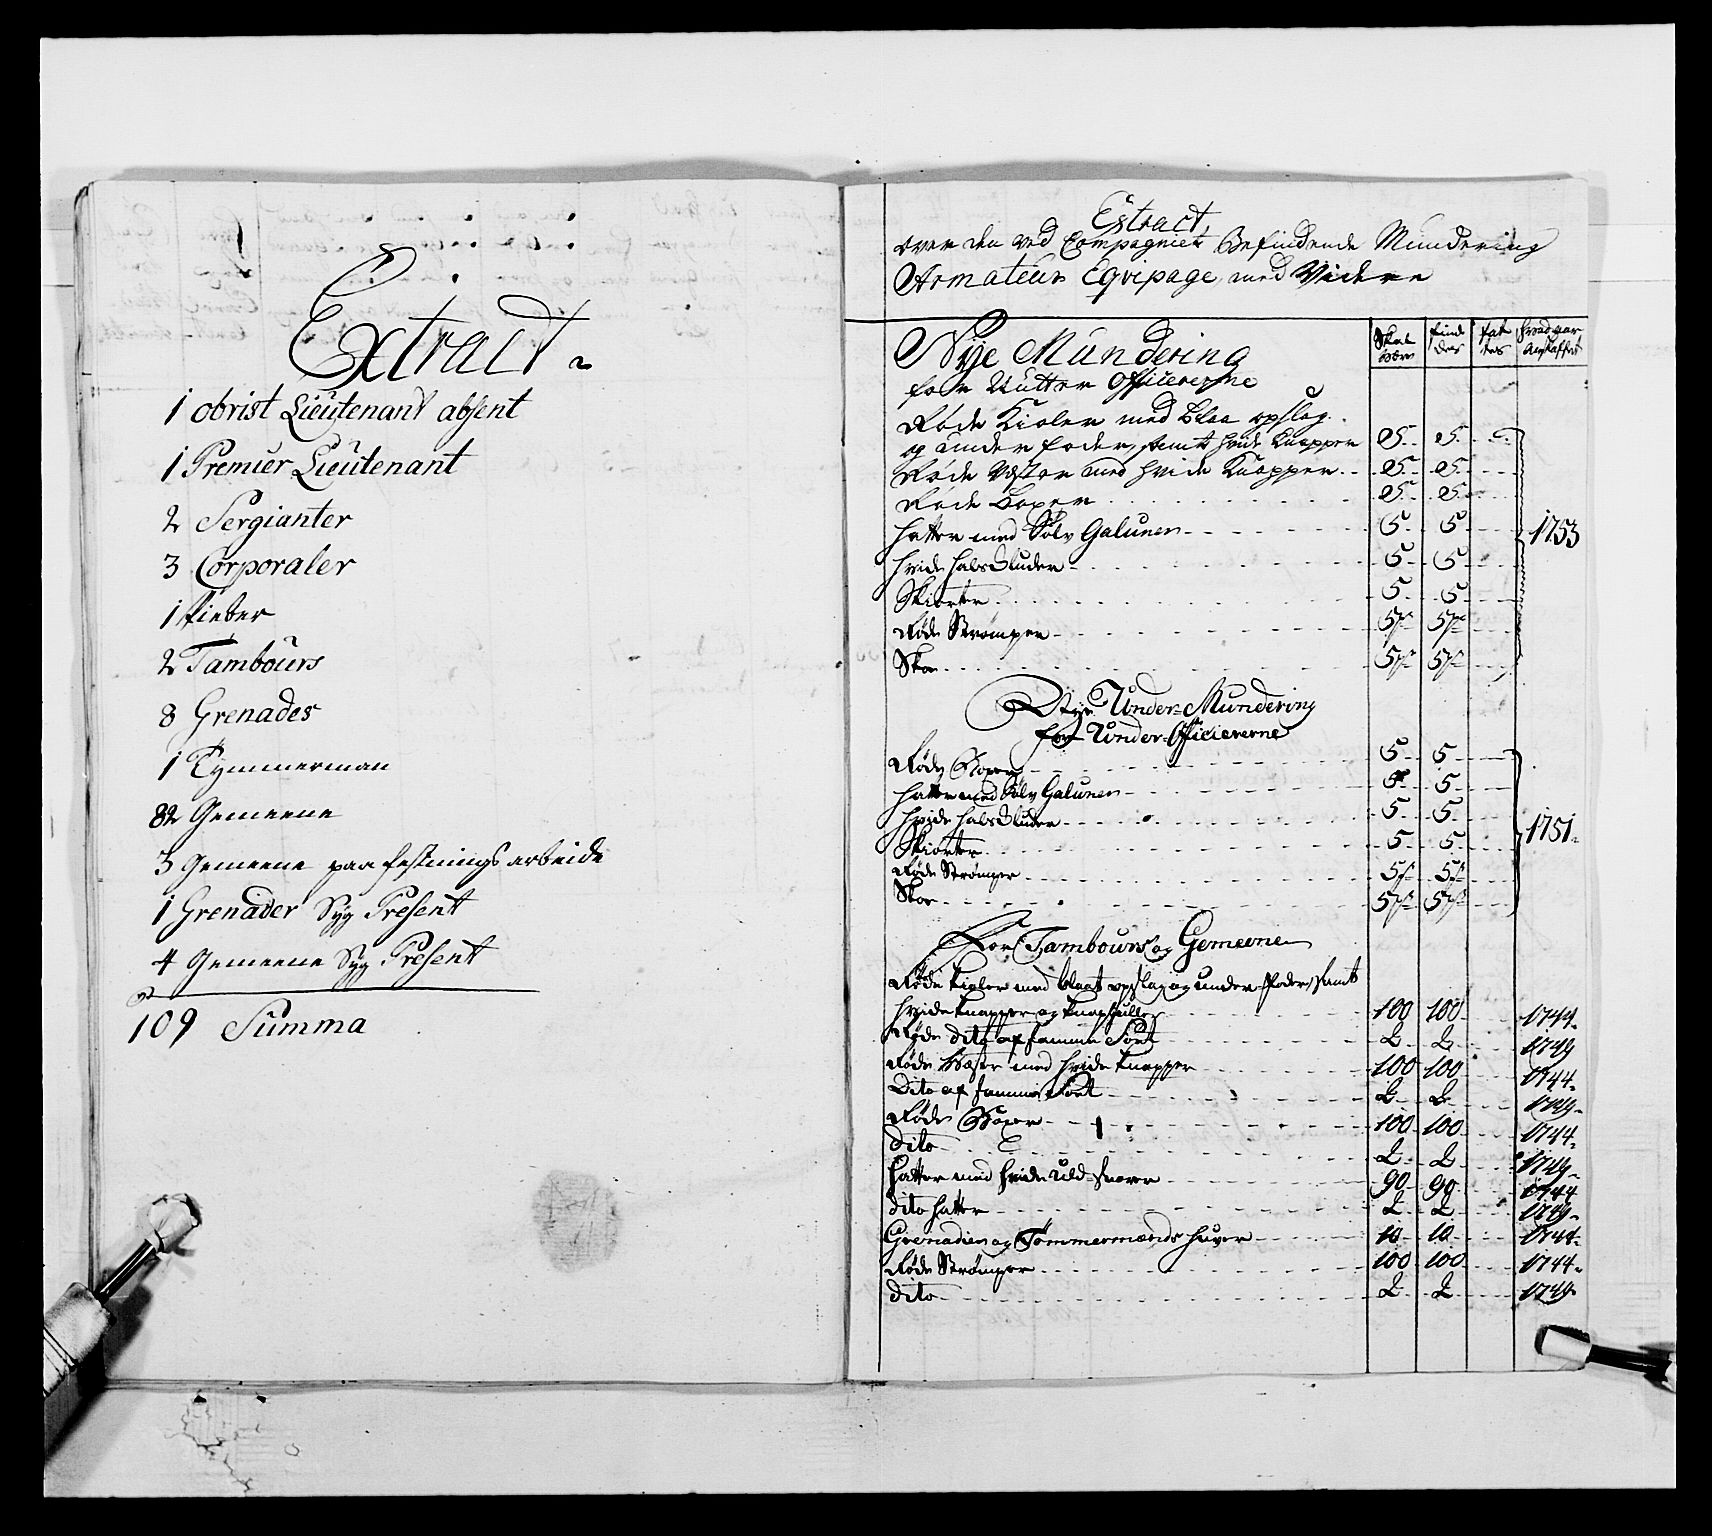 Extract
1 obrist Lieutenant absent
1 Premier Lieutenant
2 Sergianter
3 Corporaler
1 Pieber
2 Tambours
8 Grenades
1 Tymmerman
82 Gemeene
3 Gemeene paa festnings arbeide
1 Grenader Syg Present
4 Gemeene Syg Present
109 Summa
Extract
over den ved Compagniet Befindende Mundering
Armateur Eqvipage med Videre
Skal være findes fattes hvad aar Anskaffet
Nye Mundering
for Under Officererne
Røde Kioler med blaa opslag
og under foder, samt hvide knapper 5 5
Røde Vester med hvide knapper 5 5
Røde Boxer 5 5
Hatter med Sølv Galuner 5 5 1753
hvide halsKluder 5 5
Skiorter 5 5
Røde Strømper 5 p 5 p
Skoe 5 p 5 p
Under-Mundering
for Under-Officiererne
Røde Boxer 5 5
Hatter med Sølv Galuner 5 5
hvide halsKluder 5 5
Skiorter 5 5 1751
Røde Strømper 5 p 5 p
Skoe 5 p 5 p
For Tambours og Gemeene
Røde Kioler med blaat opslag og under-foder, samt
hvide knapper og knaphuller 100 100 1744
Røde dito af samme Sort 2 2 1749
Røde Vester med hvide knapper 100 100 1744
Dito af samme Sort 2 2 1749
Røde Boxer 100 100 1744
dito 2 2 1749
Hatter med hvide uld-snorer 90 90 1744
dito hatter 2 2 1749
Grenadier og Tømmermænds huver 10 10 1744
Røde Strømper 100 100 1744
dito 2 2 1749